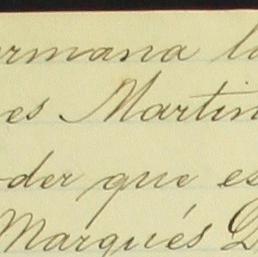 ermana la
es Martin
der que es
Marqués D